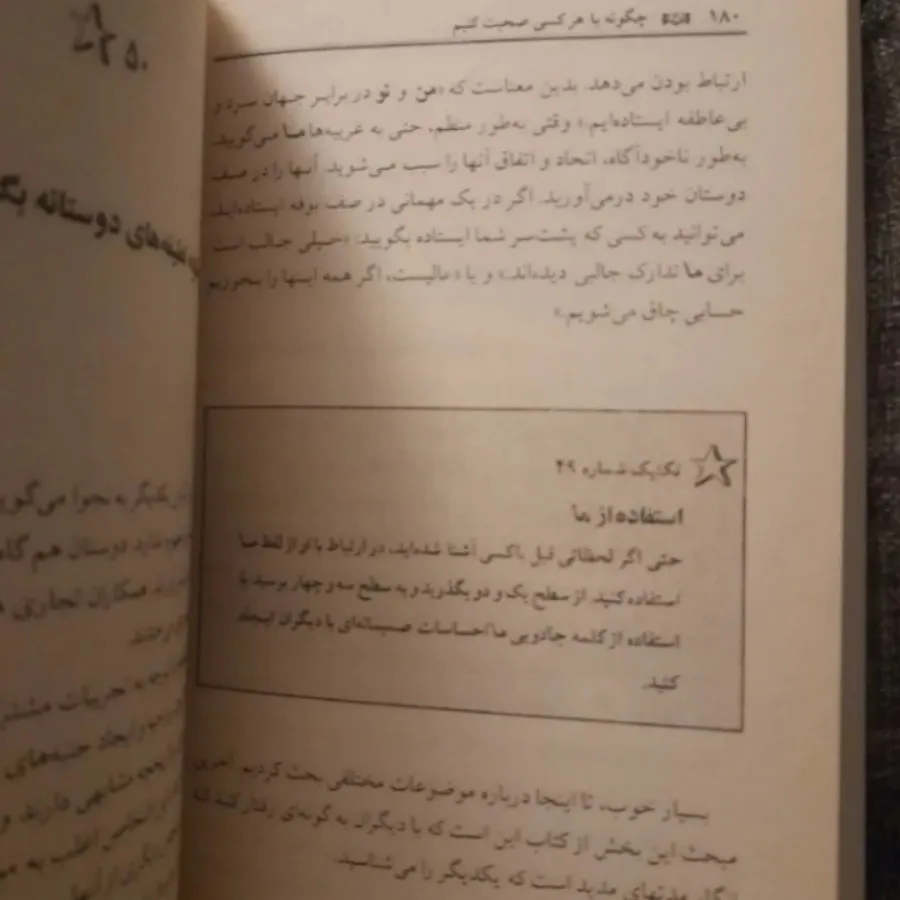 ۱۸۰ چگونه با هر کسی صحبت کنیم
ارتباط بودن می‌دهد. بدین معناست که «من و تو در برابر جهان سرد و
بی‌عاطفه ایستاده‌ایم.» وقتی به‌طور منظم، حتی به غریبه‌ها ما می‌گویید،
به‌طور ناخودآگاه، اتحاد و اتفاق آنها را سبب می‌شوید. آنها را در صف
دوستان خود درمی‌آورید. اگر در یک مهمانی در صف بوفه ایستاده‌اید،
می‌توانید به کسی که پشت‌سر شما ایستاده بگویید: «خیلی جالب است
برای ما تدارک جالبی دیده‌اند.» و یا «عالیست، اگر همه اینها را بخوریم
حسابی چاق می‌شویم.»
تکنیک شماره ۴۹
استفاده از ما
حتی اگر لحظاتی قبل با کسی آشنا شده‌اید، در ارتباط با او از لفظ ما
استفاده کنید. از سطح یک و دو بگذرید و به سطح سه و چهار برسید. با
استفاده از کلمه جادویی ما احساسات صمیمانه‌ای با دیگران ایجاد
کنید.
بسیار خوب، تا اینجا درباره موضوعات مختلفی بحث کردیم. آخرین
مبحث این بخش از کتاب این است که با دیگران به گونه‌ای رفتار کنید که
انگار مدتهای مدید است که یکدیگر را می‌شناسید.
۵۰
های دوستانه
یکدیگر به نجوا می‌گوی
دوستان هم گاه
همکاران تجاری
به تجربیات مشتر
ایجاد جنبه‌های
مشابهی دارند و
اغلب به